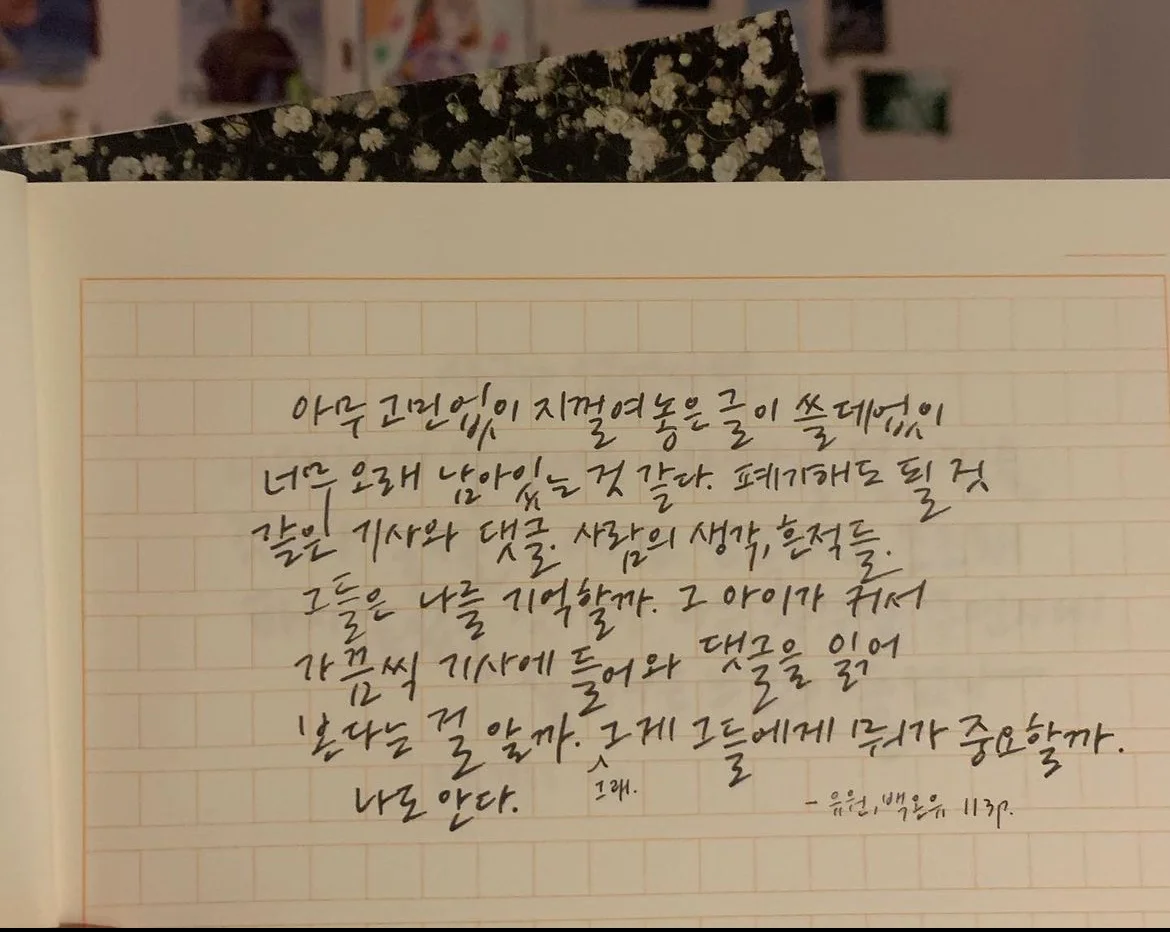 아무 고민없이 지껄여놓은 글이 쓸데없이
너무 오래 남아있는 것 같다. 폐기해도 될 것
같은 기사와 댓글. 사람의 생각, 흔적들.
그들은 나를 기억할까. 그 아이가 커서
가끔씩 기사에 들어와 댓글을 읽어
본다는 걸 알까. 그게 그들에게 뭐가 중요할까.
그래.
나도 안다.
- 유원, 백온유 113p.